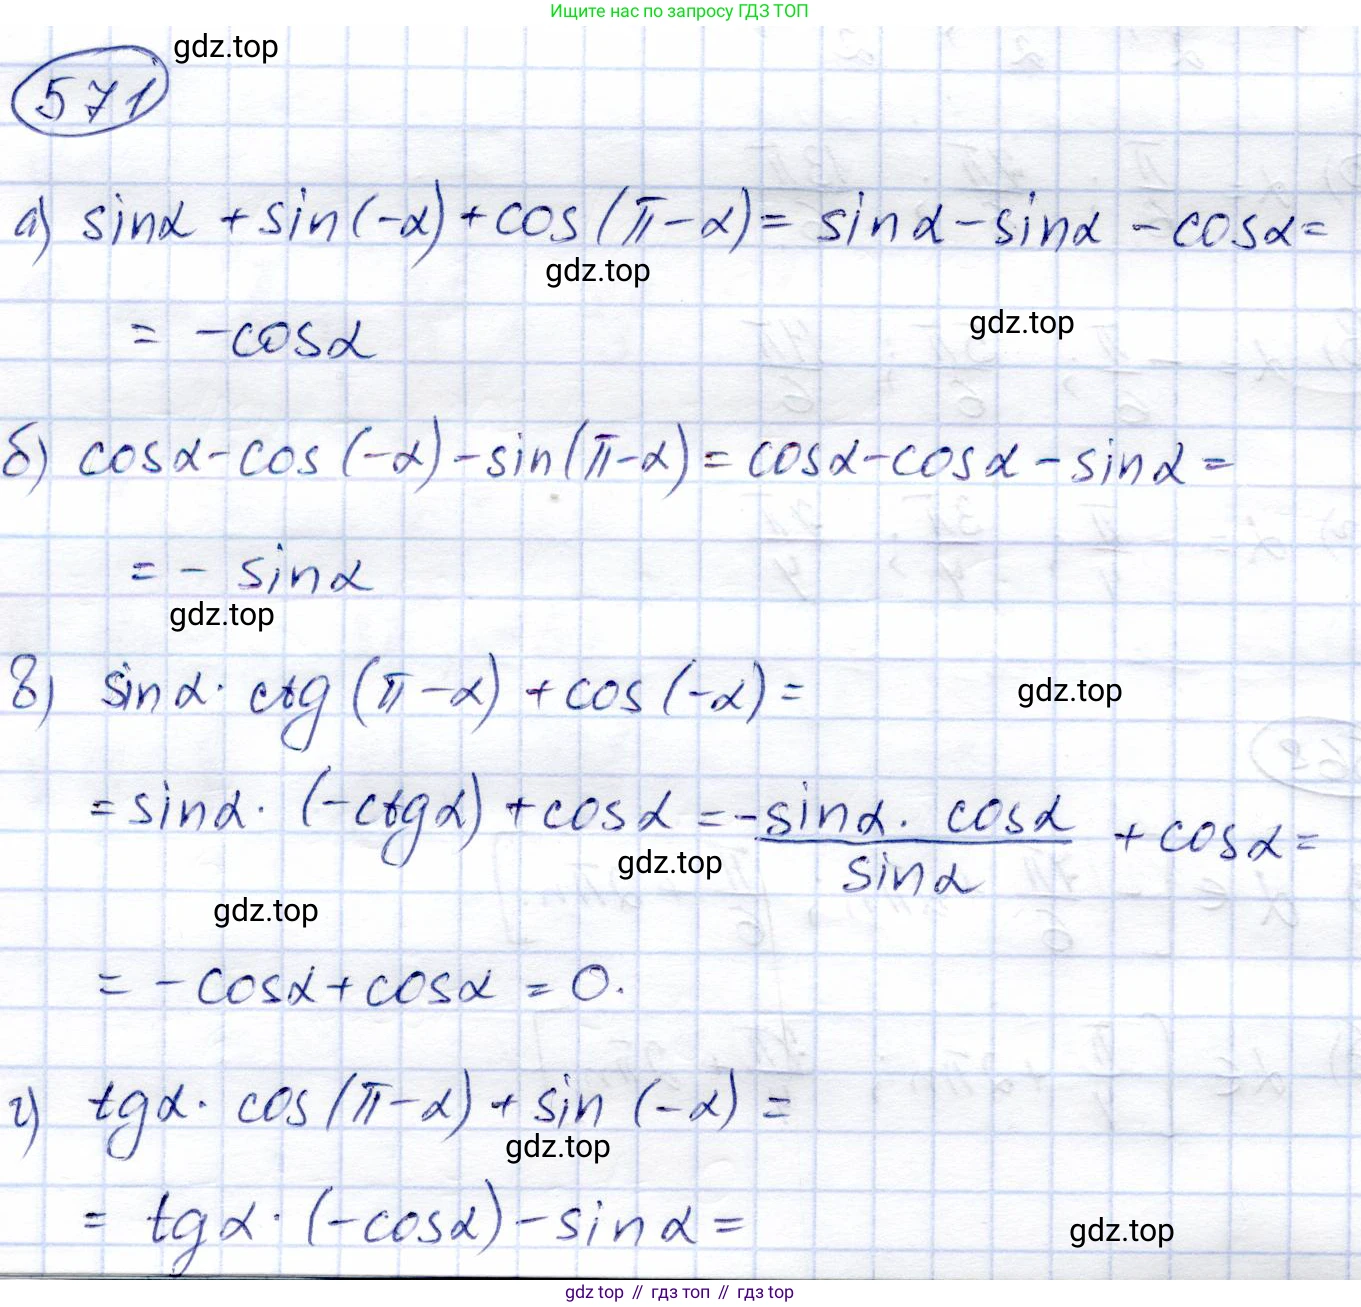 Ищите нас по запросу ГДЗ ТОП
gdz.top
571
а) sinα + sin(-α) + cos(π-α) = sinα - sinα - cosα =
gdz.top
= -cosα
gdz.top
б) cosα - cos(-α) - sin(π-α) = cosα - cosα - sinα =
= - sinα
gdz.top
в) sinα · ctg(π-α) + cos(-α) =
gdz.top
= sinα · (-ctgα) + cosα = - sinα · cosα / sinα + cosα =
gdz.top
gdz.top
= -cosα + cosα = 0.
г) tgα · cos(π-α) + sin(-α) =
gdz.top
= tgα · (-cosα) - sinα =
gdz.top
gdz top // гдз топ // гдз top